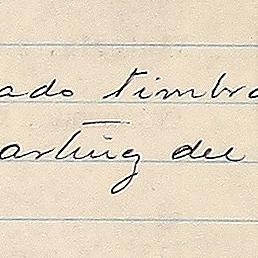 ado timbra
arting del